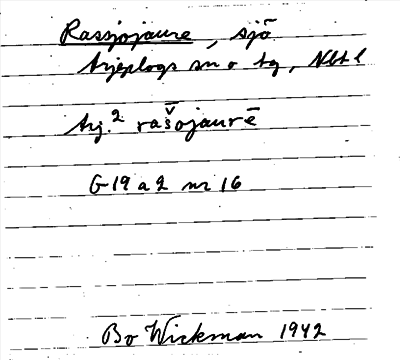 Rassjojaure, sjö
Arjeplogs sn o tg, Nbtl
Arj.² rǎšojaurē
G 19 a 2 nr 16
Bo Wickman 1942